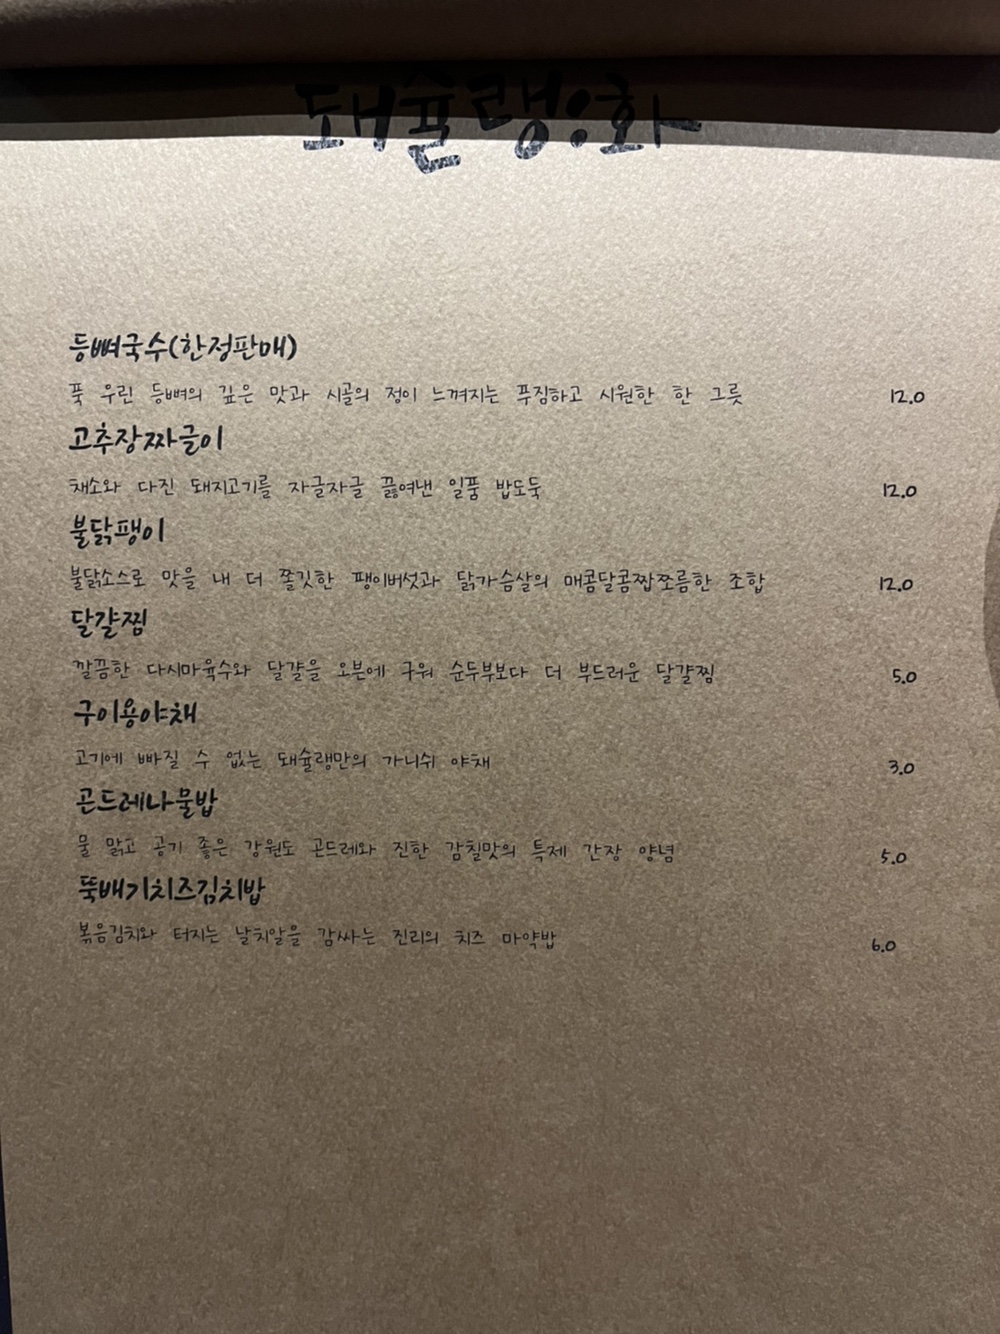 돼슐랭:화
등뼈국수(한정판매)
푹 우린 등뼈의 깊은 맛과 시골의 정이 느껴지는 푸짐하고 시원한 한 그릇 12.0
고추장짜글이
채소와 다진 돼지고기를 자글자글 끓여낸 일품 밥도둑 12.0
불닭팽이
불닭소스로 맛을 내 더 쫄깃한 팽이버섯과 닭가슴살의 매콤달콤짭쪼름한 조합 12.0
달걀찜
깔끔한 다시마육수와 달걀을 오븐에 구워 순두부보다 더 부드러운 달걀찜 5.0
구이용야채
고기에 빠질 수 없는 돼슐랭만의 가니쉬 야채 3.0
곤드레나물밥
물 맑고 공기 좋은 강원도 곤드레와 진한 감칠맛의 특제 간장 양념 5.0
뚝배기치즈김치밥
볶음김치와 터지는 날치알을 감싸는 진리의 치즈 마약밥 6.0